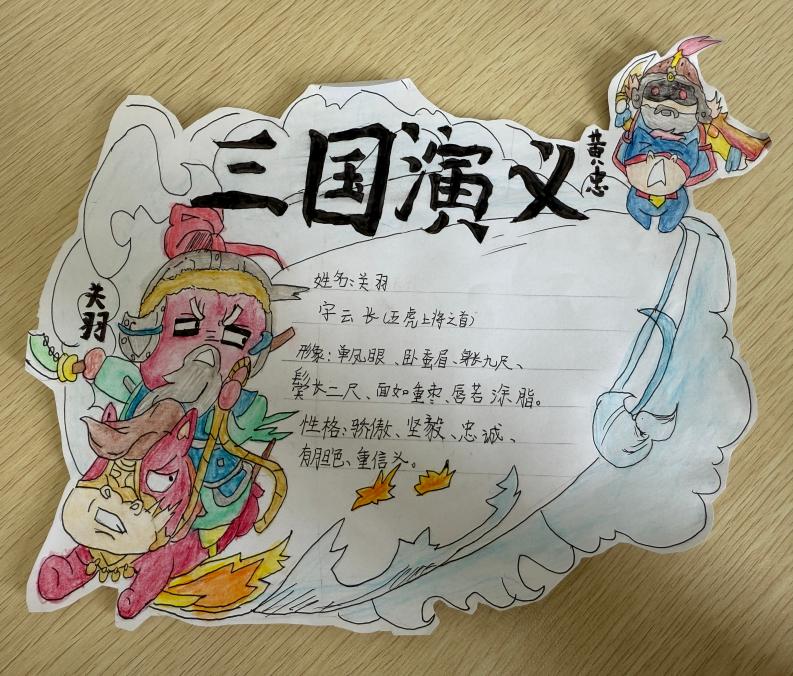 三国演义
黄忠
关羽
姓名:关羽
字云长(五虎上将之首)
形象:单凤眼、卧蚕眉、身长九尺、
髯长二尺、面如重枣、唇若涂脂。
性格:骄傲、坚毅、忠诚、
有胆色、重信义。